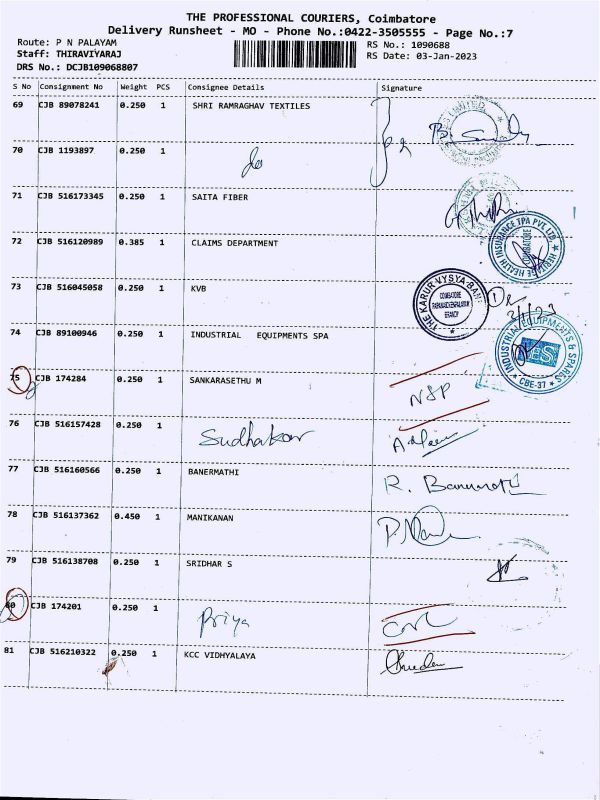 THE PROFESSIONAL COURIERS, Coimbatore
Delivery Runsheet - MO - Phone No.:0422-3505555 - Page No.:7
Route: P N PALAYAM
RS No.: 1090688
Staff: THIRAVIYARAJ
RS Date: 03-Jan-2023
DRS No.: DCJB109068807
S No Consignment No Weight PCS Consignee Details Signature
69 CJB 89078241 0.250 1 SHRI RAMRAGHAV TEXTILES
70 CJB 1193897 0.250 1 do
71 CJB 516173345 0.250 1 SAITA FIBER
72 CJB 516120989 0.385 1 CLAIMS DEPARTMENT
HERITAGE HEALTH INSURANCE TPA PVT LTD
COIMBATORE
73 CJB 516045058 0.250 1 KVB
THE KARUR VYSYA BANK
COIMBATORE
BRANCH
74 CJB 89100946 0.250 1 INDUSTRIAL EQUIPMENTS SPA
INDUSTRIAL EQUIPMENTS & SPARES
CBE-37
75 CJB 174284 0.250 1 SANKARASETHU M NSP
76 CJB 516157428 0.250 1 Sudhakar
77 CJB 516160566 0.250 1 BANERMATHI R. Banumathi
78 CJB 516137362 0.450 1 MANIKANAN
79 CJB 516138708 0.250 1 SRIDHAR S
80 CJB 174201 0.250 1 Priya
81 CJB 516210322 0.250 1 KCC VIDHYALAYA